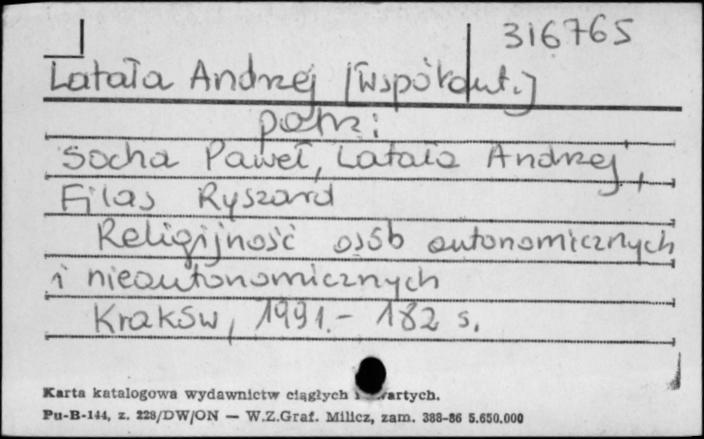 316765
Latała Andrzej [Współaut.]
patrz:
Socha Paweł, Latała Andrzej,
Filas Ryszard
Religijność osób autonomicznych
i nieautonomicznych
Kraków, 1991.- 182 s.
Karta katalogowa wydawnictw ciągłych i zwartych.
Pu-B-144, z. 228/DW/ON — W.Z.Graf. Milicz, zam. 388-86 5.650.000